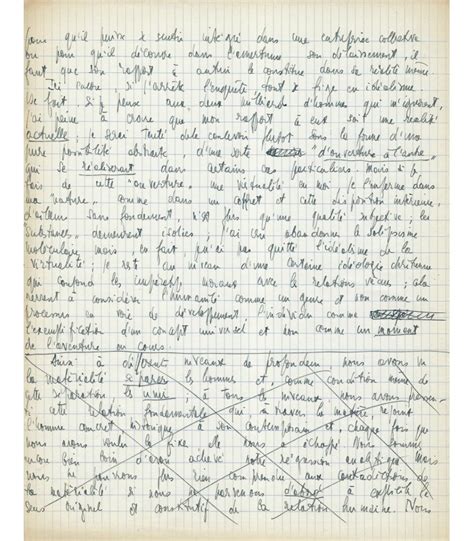 pour qu'il puisse se sentir intégré dans une entreprise collective
ou pour qu'il découvre dans l'amertume son délaissement, il
faut que son rapport à autrui le constitue dans sa réalité même
Ici encore si j'arrête l'enquête tout se fige en idéalisme.
De fait si je pense aux deux milliards d'hommes qui m'
j'ai peine à croire que mon rapport à eux soit une réalité
actuelle; je serai tenté de le concevoir plutôt sous la forme d'une
pure possibilité abstraite, d'une sorte "d'ouverture à l'autre"
qui se réaliserait dans certains cas particuliers. Mais si je
fais de cette "ouverture" une virtualité en moi, je l'enferme dans
ma "nature" comme dans un coffret et cette disposition intérieure,
d'ailleurs sans fondement, n'est plus qu'une qualité subjective; les
substances demeurent isolées; j'ai bien abandonné le solipsisme
moléculaire mais en fait, je n'ai pas quitté l'idéalisme de la
virtualité; je reste au niveau d'une certaine idéologie chrétienne
qui confond les impératifs moraux avec les relations vécues; cela
revient à considérer l'humanité comme un genre et non comme un
processus en voie de développement, l'individu comme
l'exemplification d'un concept universel et non comme un moment
de l'aventure en cours.
Ainsi à différents niveaux de profondeur nous avons vu
la matérialité séparer les hommes et, comme condition même de
cette séparation les unir; à tous les niveaux nous avons
cette relation fondamentale qui à travers la matière, rejoint
l'homme concret à ses contemporains et chaque fois que
nous avons voulu la fixer elle nous a échappé. Nous sommes
encore bien loin d'avoir achevé notre régression analytique Mais
nous ne pouvons plus rien comprendre aux contradictions de
la matérialité si nous ne parvenons d'abord à expliciter le
sens originel et constitutif de la relation humaine. Nous